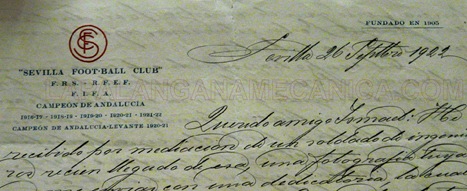 FUNDADO EN 1905
Sevilla 26 Septbre 1922
"SEVILLA FOOT-BALL CLUB"
F. R. S. - R. F. E. F.
F. I. F. A.
CAMPEON DE ANDALUCIA
1916-17 - 1918-19 - 1919-20 - 1920-21 - 1921-22
CAMPEON DE ANDALUCIA-LEVANTE 1920-21
Querido amigo Ismael: He
recibido por mediacion de un soldado de ingenie
ros recien llegado de esa, una fotografia tuya
con una dedicatoria